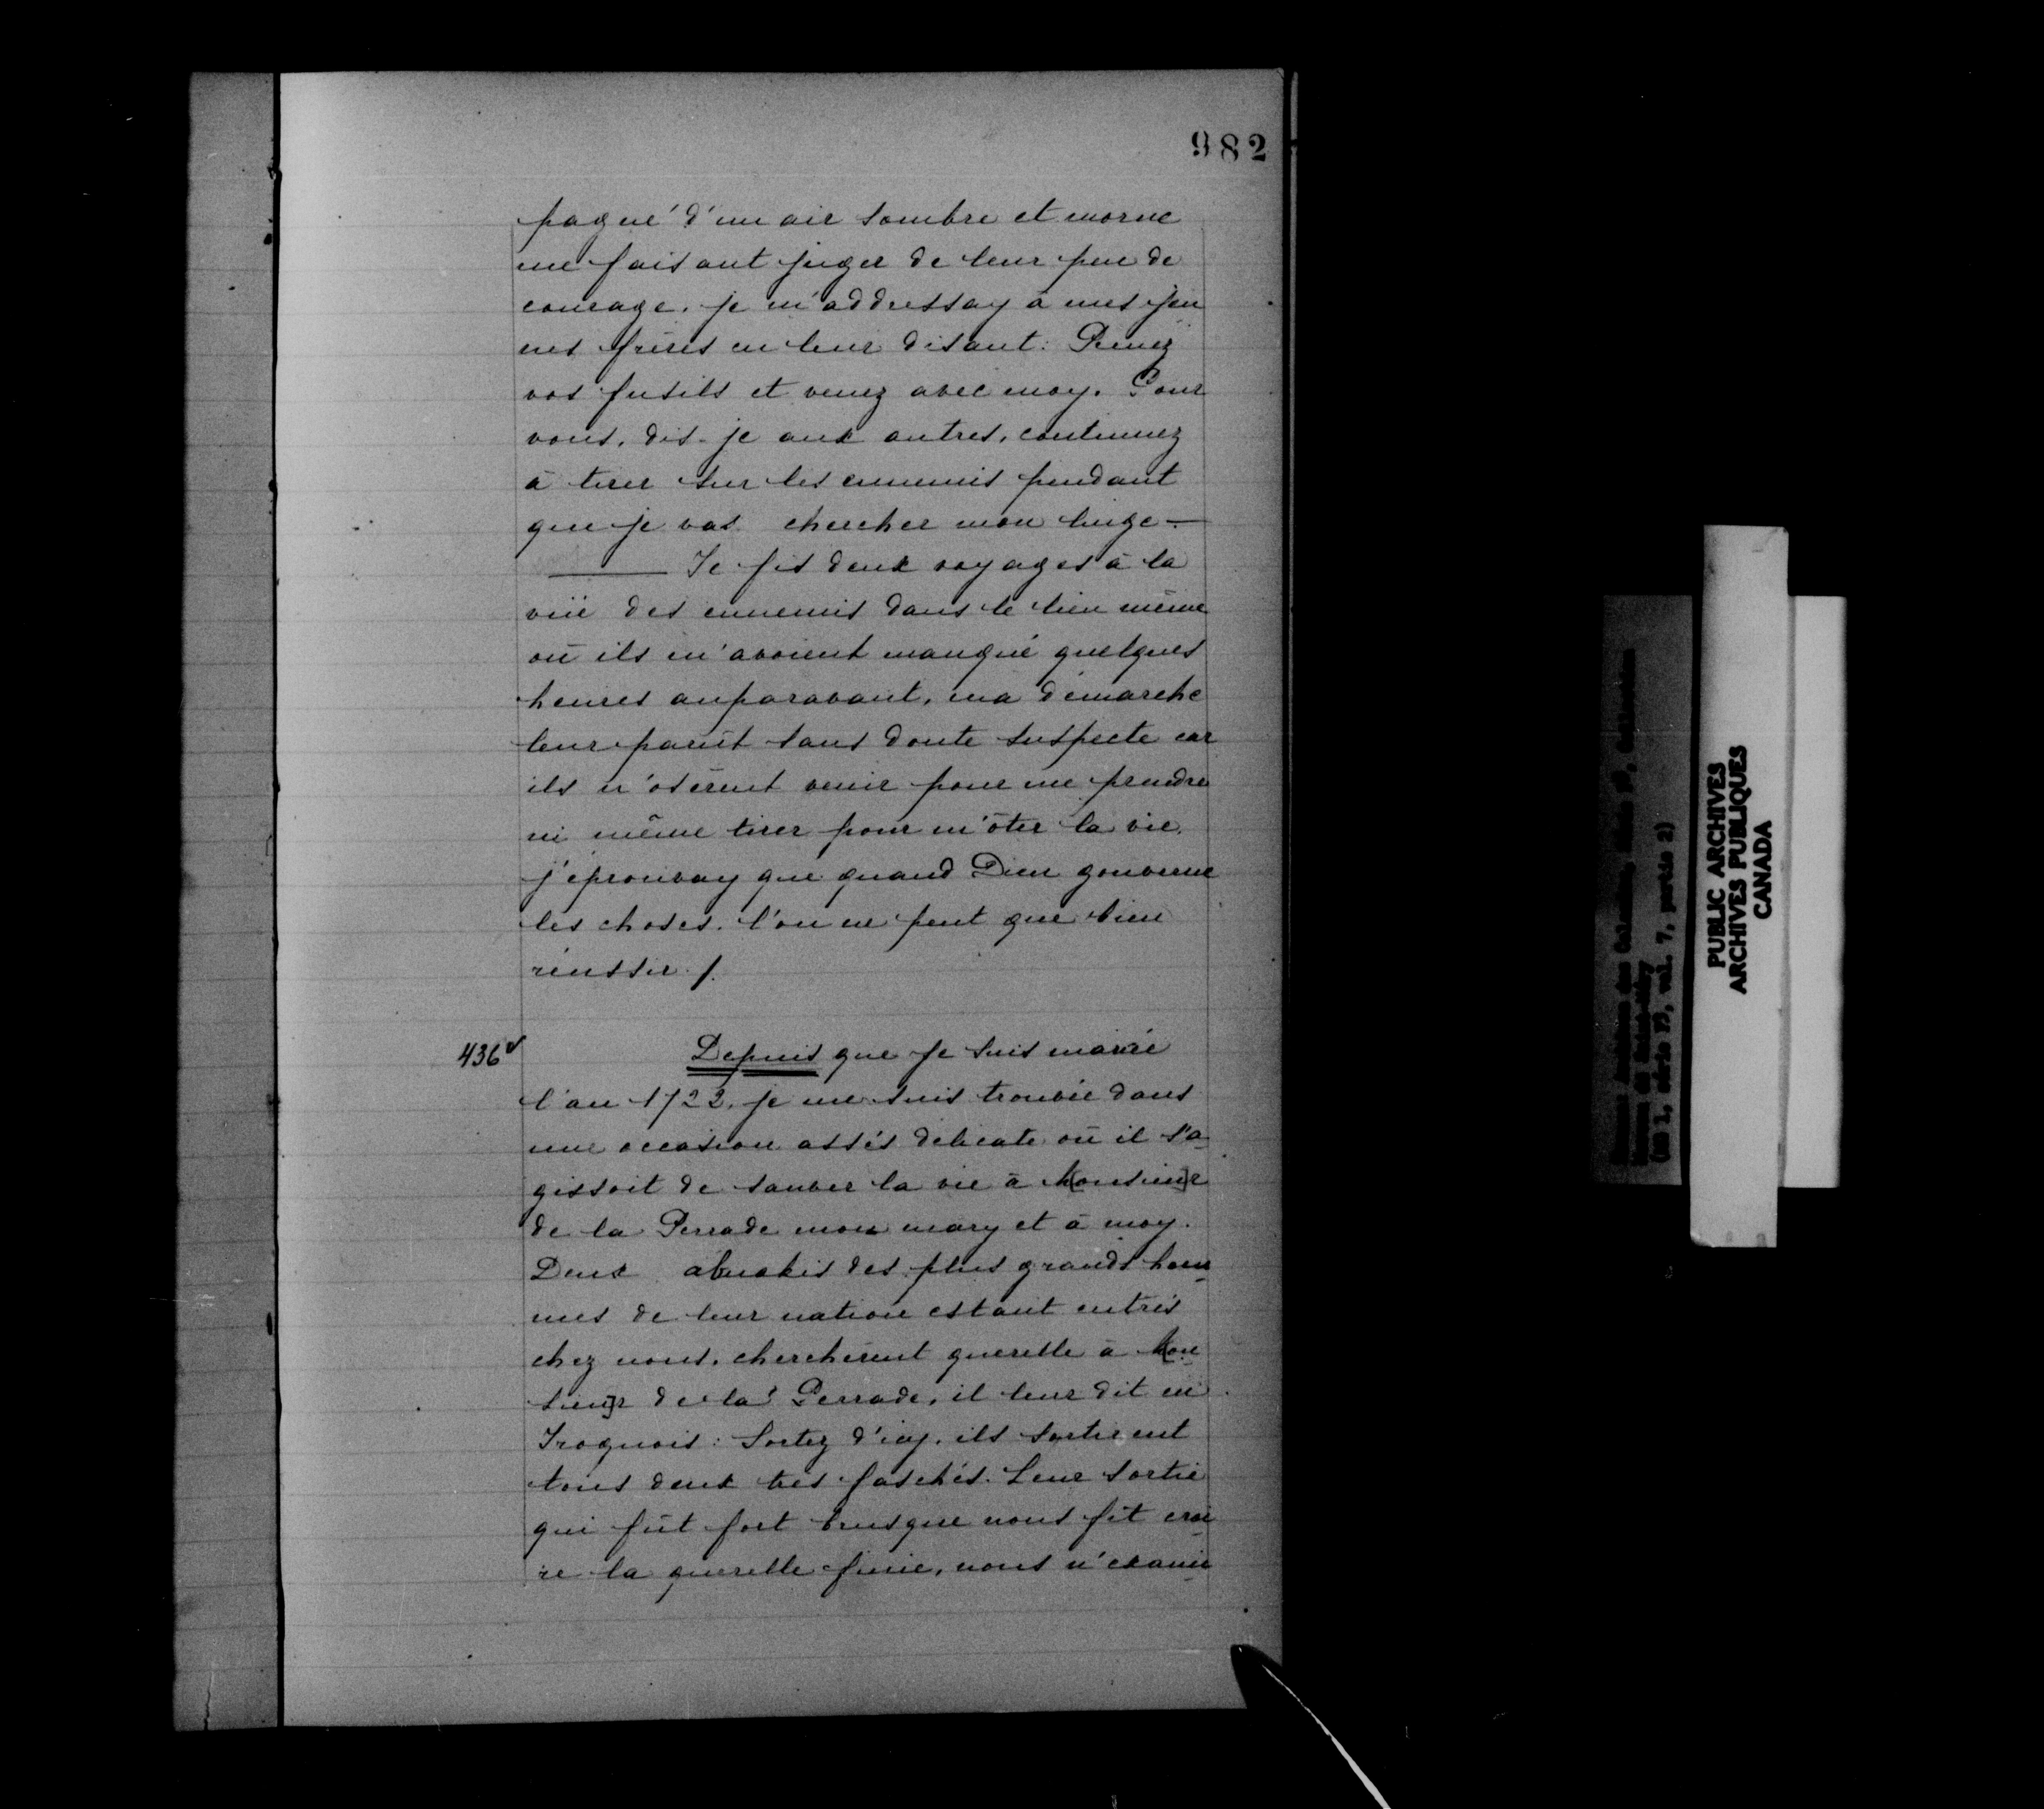 982
pagné d'un air sombre et morne
me faisant juger de leur peu de
courage, je m'addressay à mes jeu
nes frères en leur disant: Prenez
vos fusils et venez avec moy. Pour
vous, dis-je aux autres, continuez
à tirer sur les ennemis pendant
que je vas chercher mon linge.—
——— Je fis deux voyages à la
vüe des ennemis dans le lieu même
où ils m'avoient manqué quelques
heures auparavant, ma démarche
leur parût sans doute suspecte car
ils n'osèrent venir pour me prendre
ni même tirer pour m'ôter la vie.
j'éprouvay que quand Dieu gouverne
les choses, l'on ne peut que bien
réussir /.
436v
Depuis que je suis mariée
l'an 1722, je me suis trouvée dans
une occasion assés délicate où il s'a
gissoit de sauver la vie à M[onsieu]r
de la Perrade mon mary et à moy.
Deux abnakis des plus grands hom
mes de leur nation estant entrés
chez nous, cherchèrent querelle à M[on
sieu]r de la Perrade, il leur dit en
Iroquois: Sortez d'icy, ils sortirent
tous deux très faschés. Leur sortie
qui fût fort brusque nous fit croi
re la querelle finie, nous n'exami
PUBLIC ARCHIVES
ARCHIVES PUBLIQUES
CANADA
(MG 1, série F3, vol. 7, partie 2)